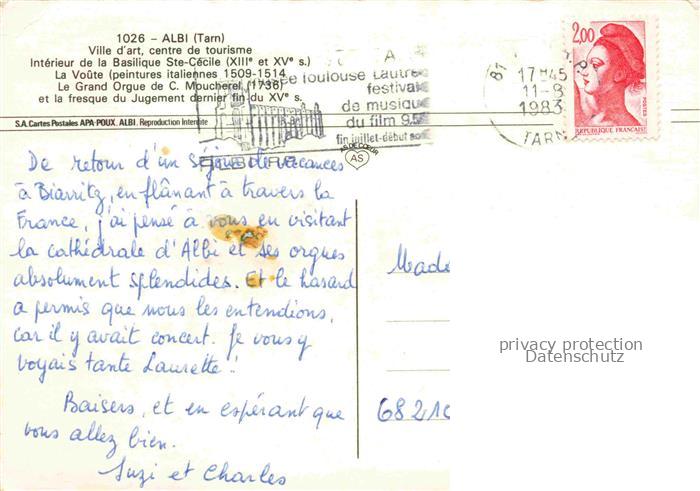 1026 - ALBI (Tarn)
Ville d'art, centre de tourisme
Intérieur de la Basilique Ste-Cécile (XIIIe et XVe s.)
La Voûte (peintures italiennes 1509-1514
Le Grand Orgue de C. Moucherel (1736)
et la fresque du Jugement dernier fin du XVe s.
S.A. Cartes Postales APA-POUX. ALBI. Reproduction Interdite
musée Toulouse Lautrec
festival
de musique
du film 9.5
fin juillet-début
AS DE CŒUR
AS
81
17H45
11-8
1983
TARN
2,00
POSTES
REPUBLIQUE FRANCAISE
De retour d'un séjour de vacances
à Biarritz, en flânant à travers la
France, j'ai pensé à vous en visitant
la cathédrale d'Albi et ses orgues
absolument splendides. Et le hasard
a permis que nous les entendions,
car il y avait concert. Je vous y
voyais tante Laurette !
Baisers, et en espérant que
vous allez bien.
Suzi et Charles
Mada
6821
privacy protection
Datenschutz